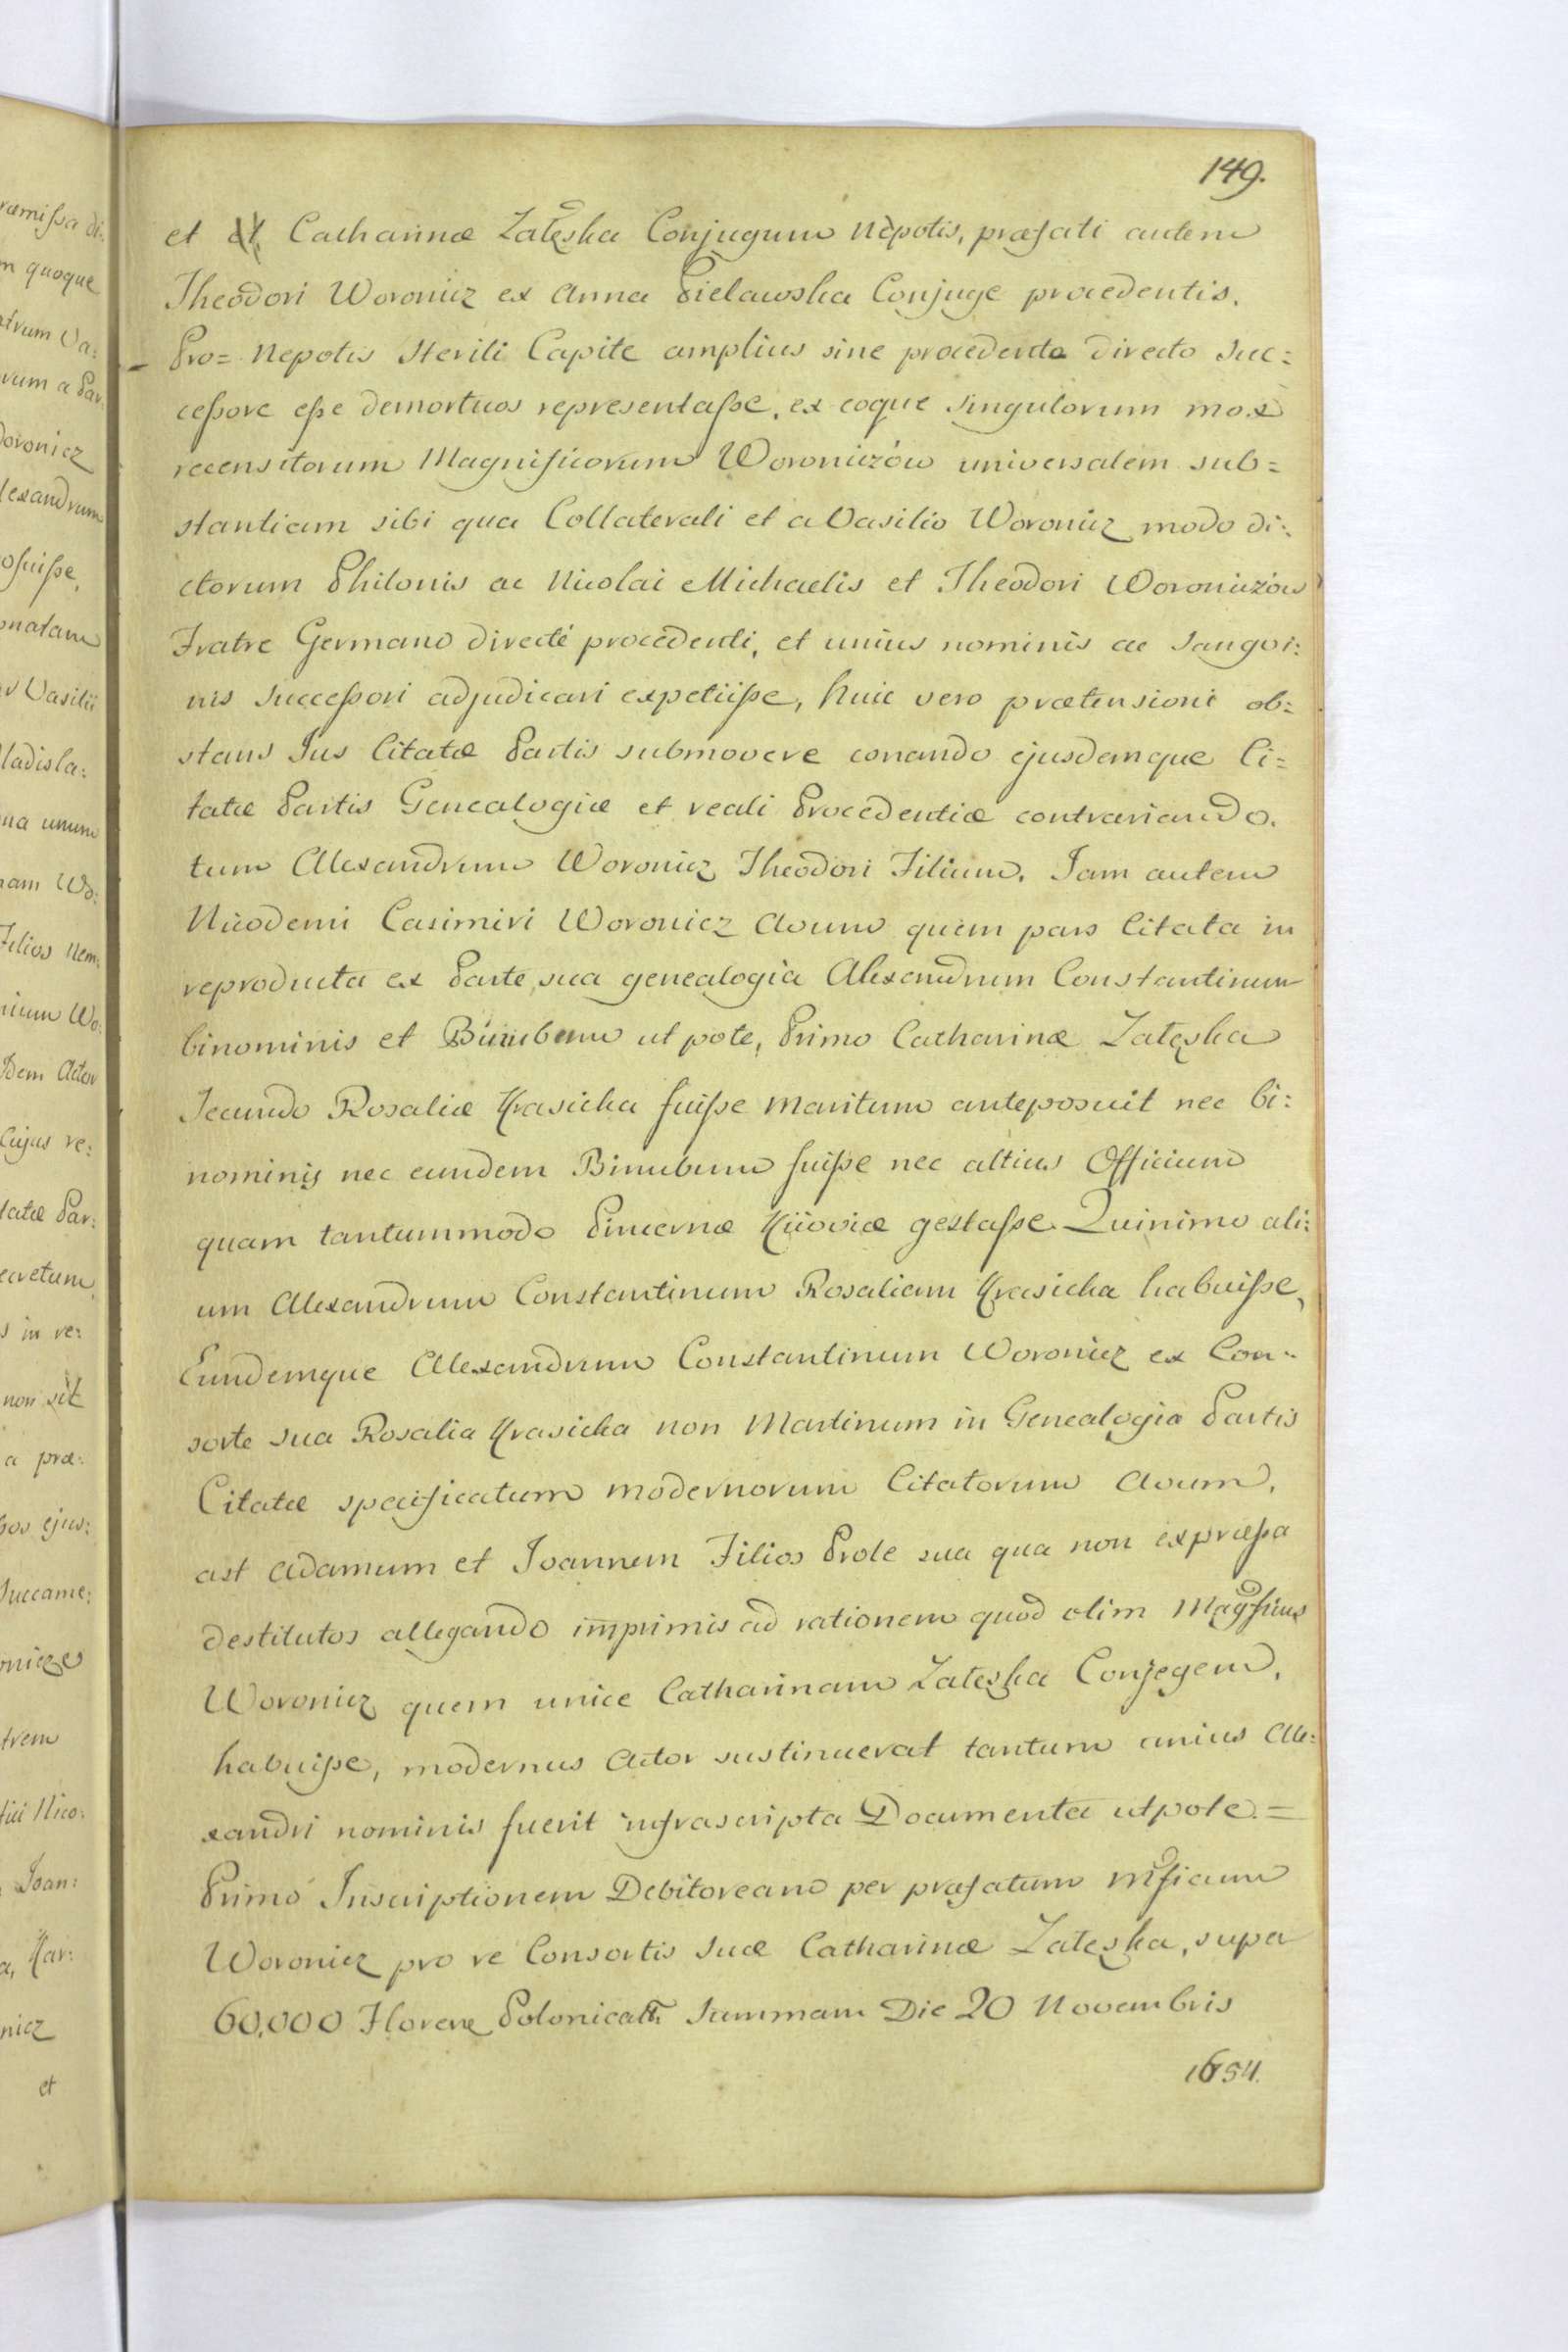 ramissa di:
m quoque
atrum Va:
rum a Par
Woronicz
lexandrum
osuisse,
onatam
Vasilii
ladisla:
na unum
nam Wo:
Filios Nem:
nium Wo:
Idem Actor
Cujus re:
tatæ Par:
ecretum
s in re:
non sit
a præ:
bos ejus:
Succame:
onicze
trem
lii Nico:
Joan:
a, Kar:
nicz
et
149.
et Catharinæ Zaleska Conjugum Nepotis, præfati autem
Theodori Woronicz ex Anna Pielawska Conjuge procedentis.
Pro= Nepotis Sterili Capite amplius sine procedente directo Suc:
cessore esse demortuos representasse, ex eoque Singulorum mox
recensitorum Magnificorum Woroniczów universalem sub=
stantiam sibi qua Collaterali et a Vasilio Woronicz modo di:
ctorum Philonis ac Nicolai Michaelis et Theodori Woroniczów
Fratre Germano directé procedenti, et unius nominis ac Sangvi:
nis Successori adjudicari expetiisse, huic vero prætensioni ob:
stans Jus Citatæ Partis submovere conando ejusdemque Ci=
tatæ Partis Genealogiæ et reali Procedentiæ contrariando.
tum Alexandrum Woronicz Theodori Filium. Jam autem
Nicodemi Casimiri Woronicz Avum quem pars Citata in
reproducta ex Parte sua genealogia Alexandrum Constantinum
binominis et Binubum ut pote, Primo Catharinæ Zaleska
Secundo Rosaliæ Krasicka fuisse Maritum anteposuit nec bi:
nominis nec eundem Binubum fuisse nec altius Officium
quam tantummodo Pincernæ Kijoviæ gestasse. Quinimo ali:
um Alexandrum Constantinum Rosaliam Krasicka habuisse,
Eundemque Alexandrum Constantinum Woronicz ex Con:
sorte sua Rosalia Krasicka non Martinum in Genealogia Partis
Citatæ specificatum modernorum Citatorum Avum,
ast Adamum et Joannem Filios Prole sua qua non expressa
destitutos allegando imprimis ad rationem quod olim Magfiius
Woronicz quem unice Catharinam Zaleska Conjegem,
habuisse, modernus Actor sustinuerat tantum unius Ale:
xandri nominis fuerit infrascripta Documenta utpote =
Primo Inscriptionem Debitoream per præfatum Mficum
Woronicz pro re Consortis Suæ Catharinæ Zaleska, supa
60,000 Floren Polonicalm Summam Die 20 Novembris
1654.